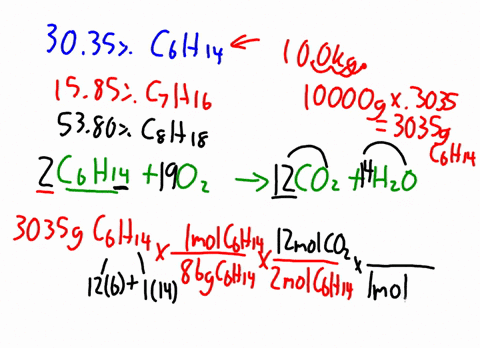 30.35% C6H14 ← 10.0kg
15.85% C7H16
10000g x .3035
= 3035g
C6H14
53.80% C8H18
2C6H14 + 19O2 → 12CO2 + 14H2O
3035g C6H14 x 1mol C6H14 / 86g C6H14 x 12mol CO2 / 2mol C6H14 x / 1mol
12(6) + 1(14)